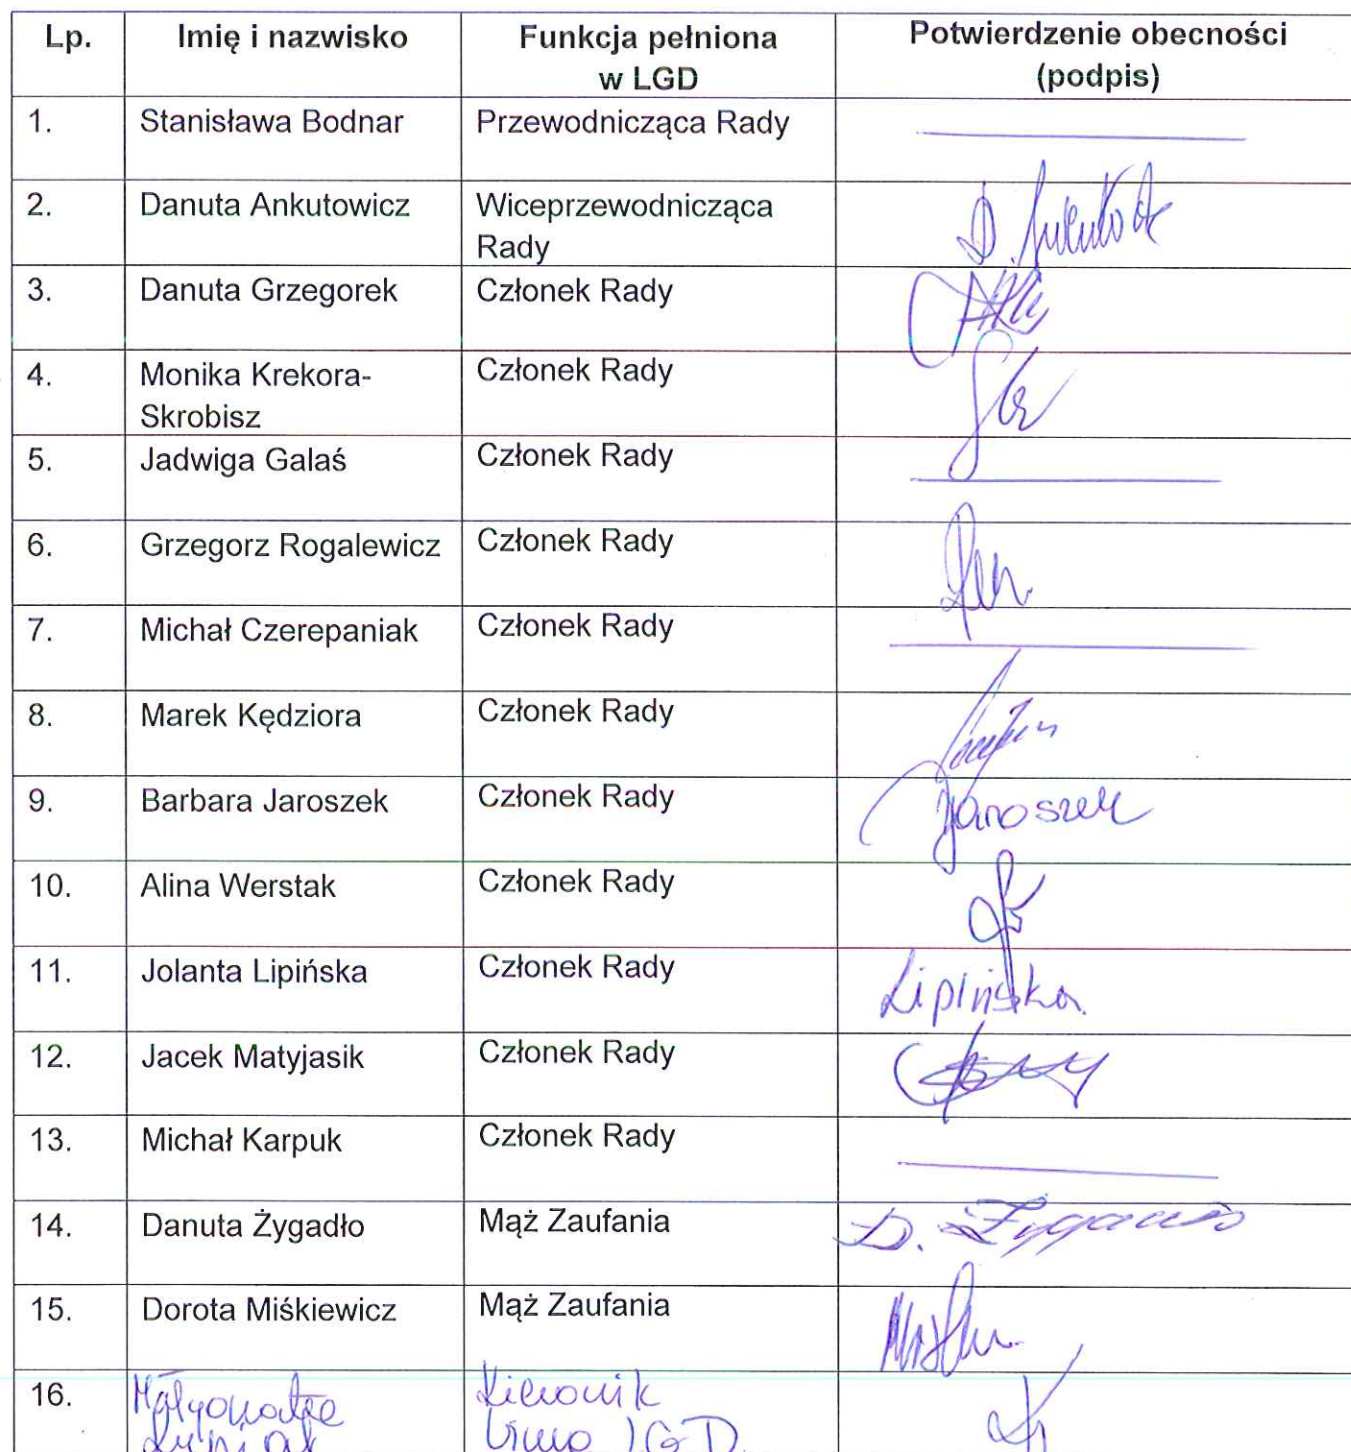 Lp. Imię i nazwisko Funkcja pełniona Potwierdzenie obecności
w LGD (podpis)
1. Stanisława Bodnar Przewodnicząca Rady
2. Danuta Ankutowicz Wiceprzewodnicząca
Rady
3. Danuta Grzegorek Członek Rady
4. Monika Krekora- Członek Rady
Skrobisz
5. Jadwiga Galaś Członek Rady
6. Grzegorz Rogalewicz Członek Rady
7. Michał Czerepaniak Członek Rady
8. Marek Kędziora Członek Rady
9. Barbara Jaroszek Członek Rady Jaroszek
10. Alina Werstak Członek Rady
11. Jolanta Lipińska Członek Rady Lipińska
12. Jacek Matyjasik Członek Rady
13. Michał Karpuk Członek Rady
14. Danuta Żygadło Mąż Zaufania D. Żygadło
15. Dorota Miśkiewicz Mąż Zaufania
16. Małgorzata Kierownik
Biura LGD